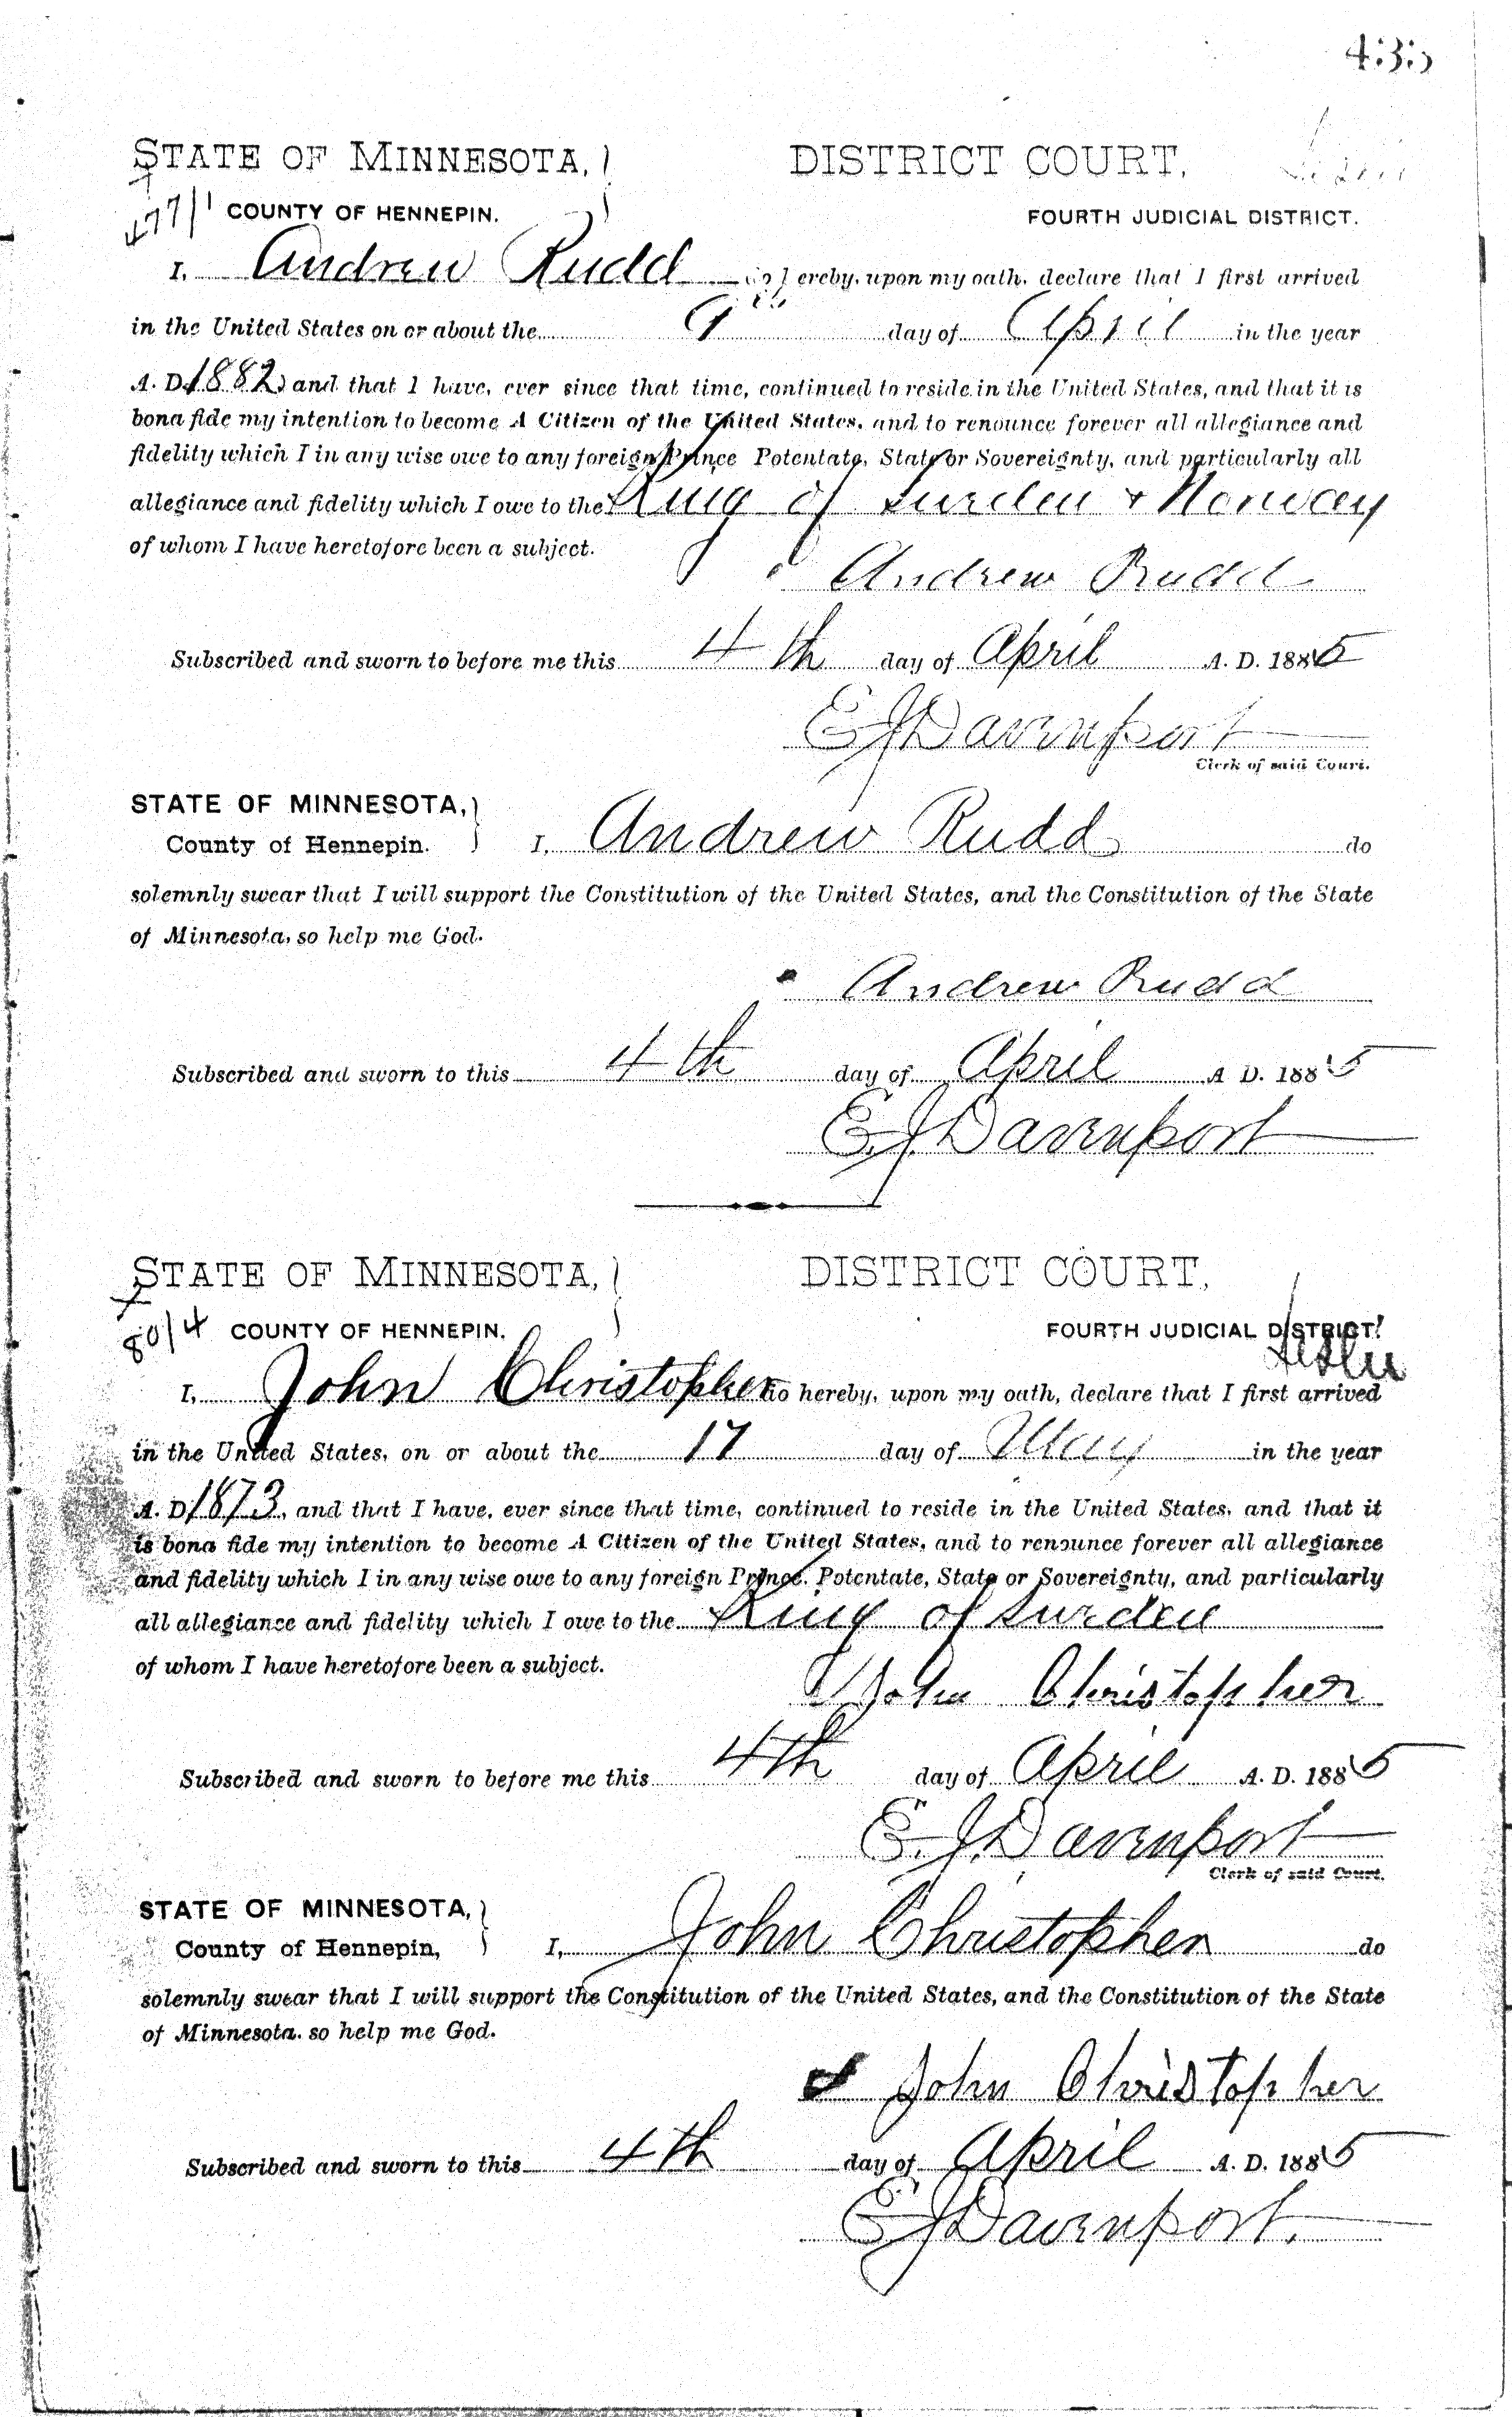 STATE OF MINNESOTA, DISTRICT COURT,
COUNTY OF HENNEPIN. FOURTH JUDICIAL DISTRICT.
I, Andrew Rudd do hereby, upon my oath, declare that I first arrived
in the United States on or about the 9th day of April in the year
A. D. 1882, and that I have, ever since that time, continued to reside in the United States, and that it is
bona fide my intention to become A Citizen of the United States, and to renounce forever all allegiance and
fidelity which I in any wise owe to any foreign Prince Potentate, State or Sovereignty, and particularly all
allegiance and fidelity which I owe to the King of Sweden & Norway
of whom I have heretofore been a subject.
Andrew Rudd
Subscribed and sworn to before me this 4th day of April A. D. 1885
E. J. Davenport
Clerk of said Court.
STATE OF MINNESOTA,
County of Hennepin. I, Andrew Rudd do
solemnly swear that I will support the Constitution of the United States, and the Constitution of the State
of Minnesota, so help me God.
Andrew Rudd
Subscribed and sworn to this 4th day of April A. D. 1885
E. J. Davenport
STATE OF MINNESOTA, DISTRICT COURT,
80/4 COUNTY OF HENNEPIN. FOURTH JUDICIAL DISTRICT.
I, John Christopher do hereby, upon my oath, declare that I first arrived
in the United States, on or about the 17 day of May in the year
A. D. 1873, and that I have, ever since that time, continued to reside in the United States, and that it
is bona fide my intention to become A Citizen of the United States, and to renounce forever all allegiance
and fidelity which I in any wise owe to any foreign Prince, Potentate, State or Sovereignty, and particularly
all allegiance and fidelity which I owe to the King of Sweden
of whom I have heretofore been a subject.
John Christopher
Subscribed and sworn to before me this 4th day of April A. D. 1885
E. J. Davenport
Clerk of said Court.
STATE OF MINNESOTA,
County of Hennepin, I, John Christopher do
solemnly swear that I will support the Constitution of the United States, and the Constitution of the State
of Minnesota, so help me God.
John Christopher
Subscribed and sworn to this 4th day of April A. D. 1885
E. J. Davenport.